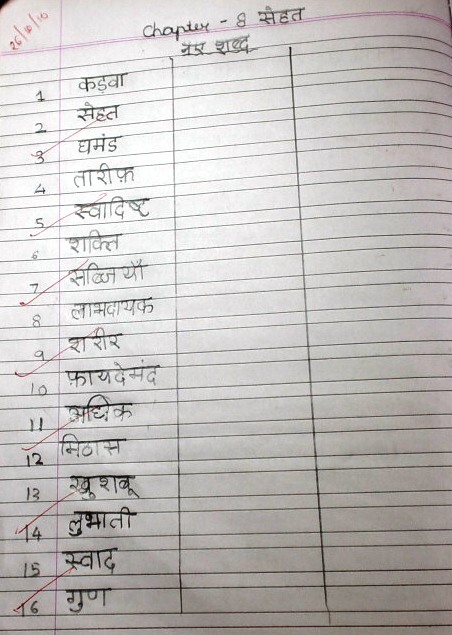 26/10/10
Chapter - 8 सेहत
नए शब्द
1 कड़वा
2 सेहत
3 घमंड
4 तारीफ़
5 स्वादिष्ट
6 शक्ति
7 सब्जियाँ
8 लाभदायक
9 शरीर
10 फ़ायदेमंद
11 अधिक
12 मिठास
13 खुशबू
14 लुभाती
15 स्वाद
16 गुण